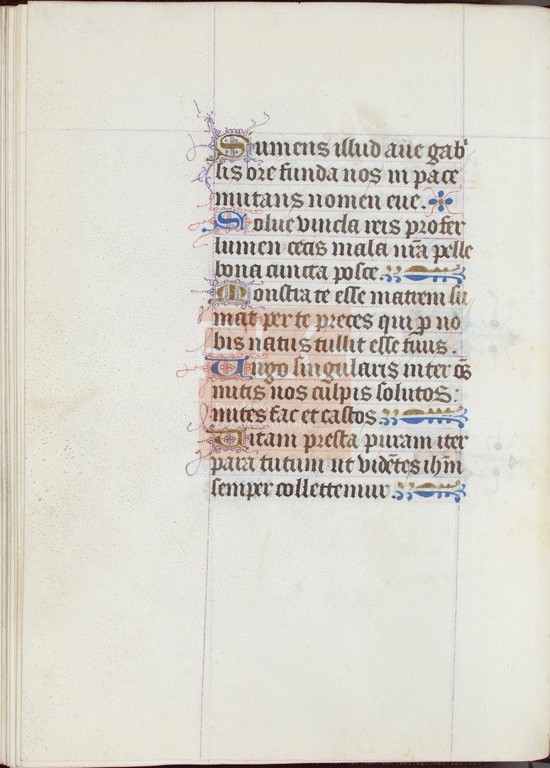 Sumens illud aue gabͥ
lis ore funda nos in pace
mutans nomen eue.
Solue vincla reis profer
lumen cecis mala nr̄a pelle
bona cuncta posce.
Monstra te esse matrem su
mat per te preces qui ꝓ no
bis natus tullit esse tuus.
Uirgo singularis inter oēs
mitis nos culpis solutos:
mites fac et castos.
Uitam presta puram iter
para tutum ut vidētes ihm̄
semper collettemur.